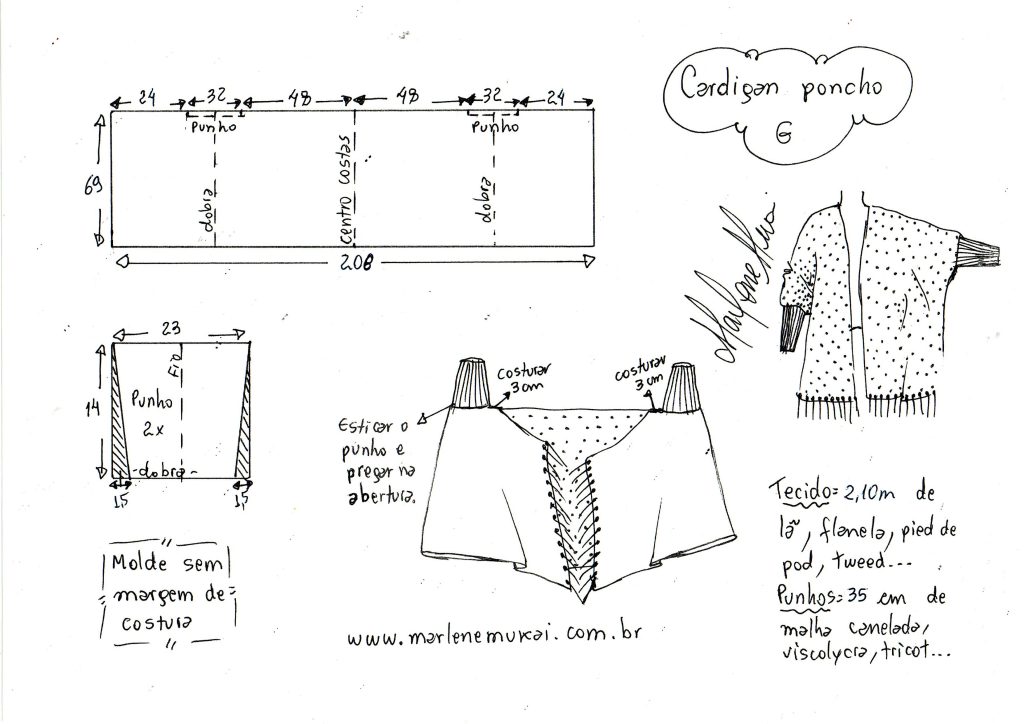 Cardigan poncho
G
24 32 48 48 32 24
Punho Punho
69
dobra
centro costas
dobra
208
23
14
Fio
Punho
2x
-dobra-
1,5 1,5
Molde sem
margem de
costura
costurar
3cm
costurar
3cm
Esticar o
punho e
pregar na
abertura.
www.marlenemukai.com.br
Marlene Mukai
Tecido=2,10m de
lã, flanela, pied de
pod, tweed...
Punhos=35 cm de
malha canelada,
viscolycra, tricot...